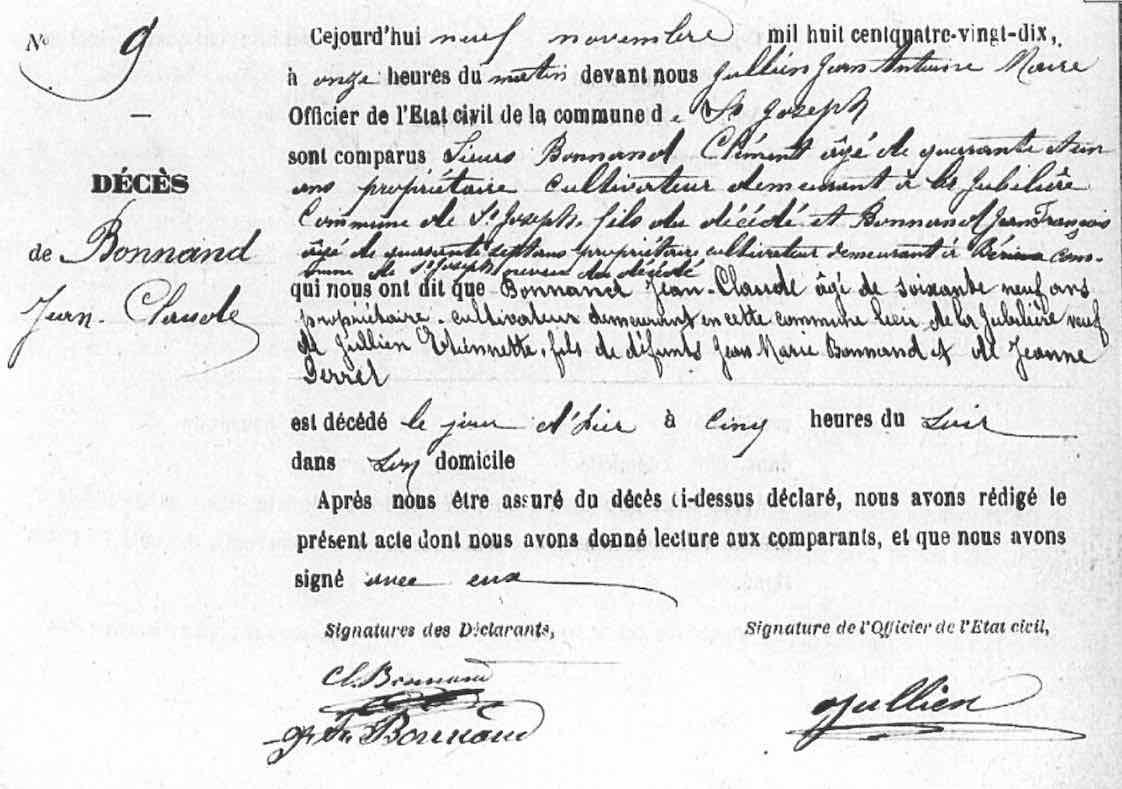 No 9
DÉCÈS
de Bonnand
Jean-Claude
Cejourd'hui neuf novembre mil huit centquatre-vingt-dix,
à onze heures du matin devant nous Jullien Jean Antoine Maire
Officier de l'Etat civil de la commune de St Joseph
sont comparus Sieurs Bonnand Clément âgé de quarante et un
ans propriétaire cultivateur demeurant à la Jubilière
Commune de St Joseph, fils du décédé et Bonnand Jean François
âgé de quarante sept ans propriétaire cultivateur demeurant à com-
mune de St Joseph neveu du décédé
qui nous ont dit que Bonnand Jean-Claude âgé de soixante neuf ans
propriétaire-cultivateur demeurant en cette commune lieu de la Jubilière veuf
de Jullien Etiennette, fils de défunts Jean Marie Bonnand et de Jeanne
Perret
est décédé le jour d'hier à cinq heures du soir
dans son domicile
Après nous être assuré du décès ci-dessus déclaré, nous avons rédigé le
présent acte dont nous avons donné lecture aux comparants, et que nous avons
signé avec eux
Signatures des Déclarants,
Signature de l'Officier de l'Etat civil,
Cl. Bonnand
Jullien
Bonnand